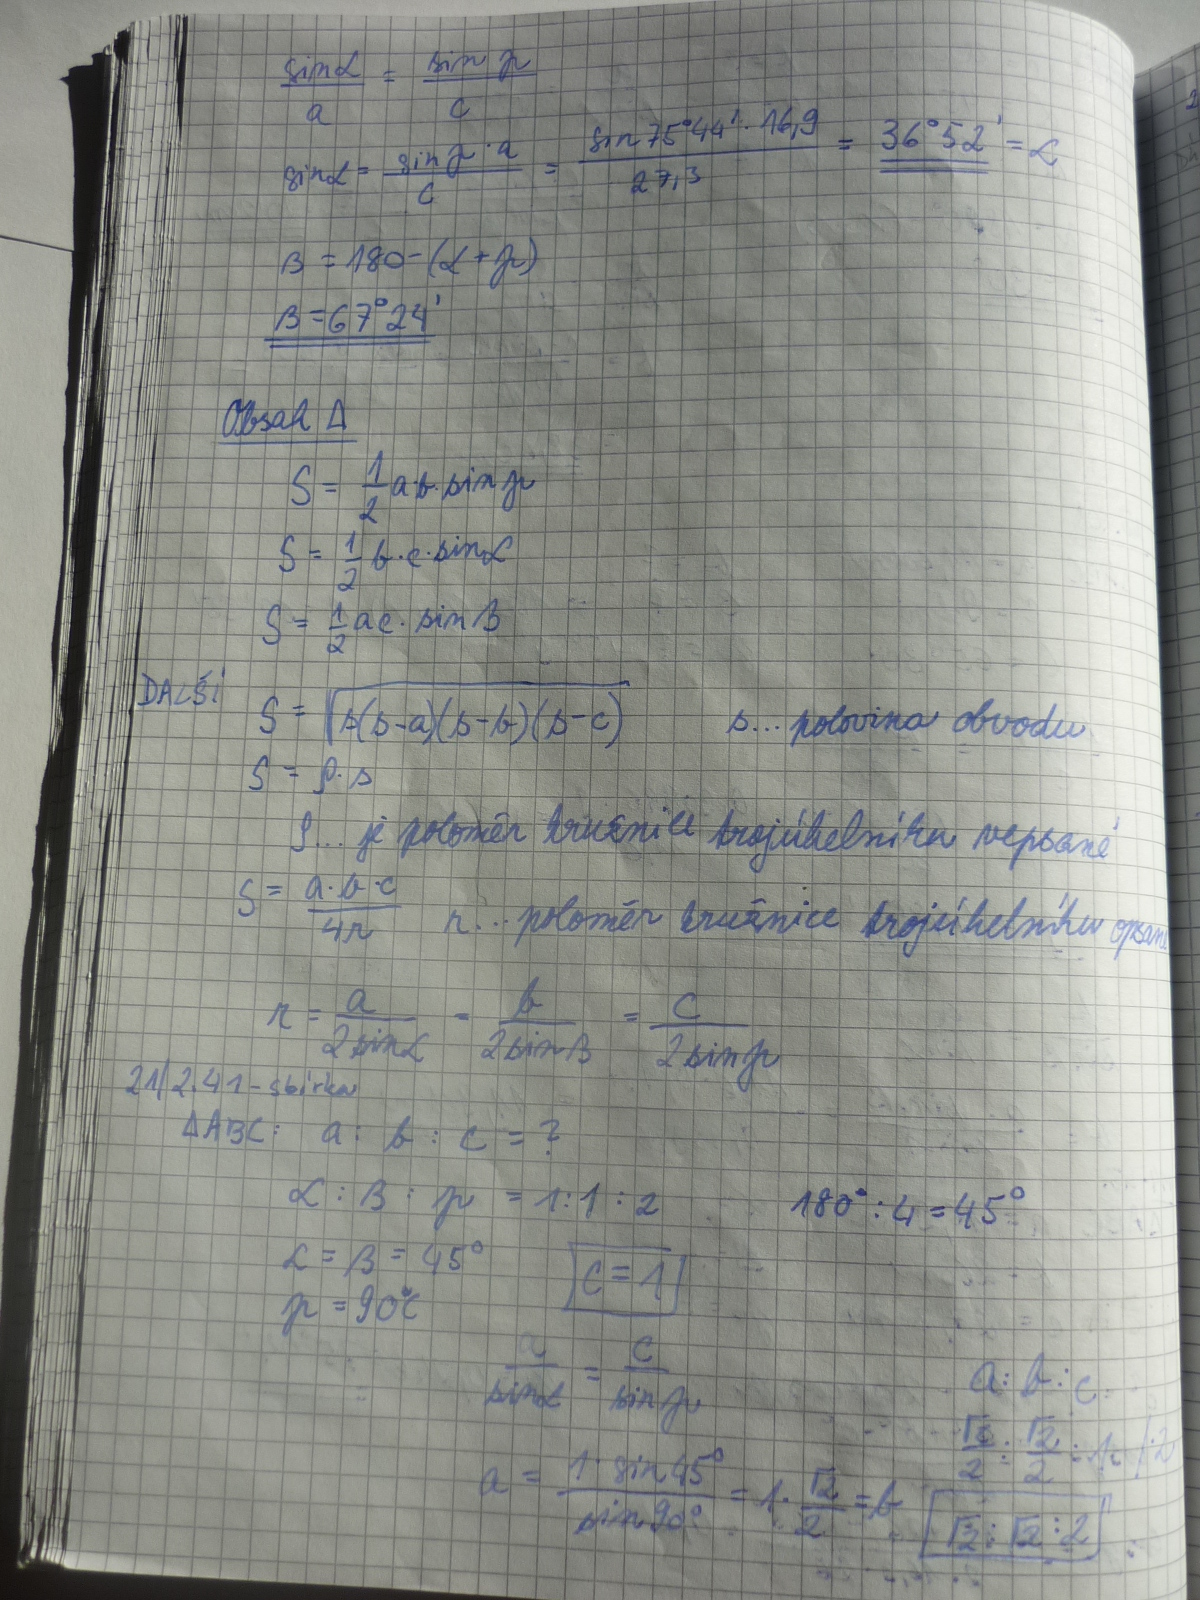 sinα/a = sin γ/c
sinα = sin γ · a/c = sin 75°44' · 16,9/27,3 = 36°52' = α
β = 180 - (α + γ)
β = 67°24'
Obsah Δ
S = 1/2 ab · sin γ
S = 1/2 b · c · sin α
S = 1/2 ac · sin β
DALŠÍ
S = √s(s-a)(s-b)(s-c) s... polovina obvodu
S = ρ · s
ρ... je poloměr kružnice trojúhelníku vepsané
S = a · b · c/4r r... poloměr kružnice trojúhelníku opsané
r = a/2sinα = b/2sinβ = c/2sinγ
21/2.41 - sbírka
ΔABC: a : b : c = ?
α : β : γ = 1 : 1 : 2 180° : 4 = 45°
α = β = 45° c = 1
γ = 90°
a/sinα = c/sinγ a : b : c
a = 1 · sin 45°/sin 90° = 1 · √2/2 = b √2/2 : √2/2 : 1 / · 2
√2 : √2 : 2